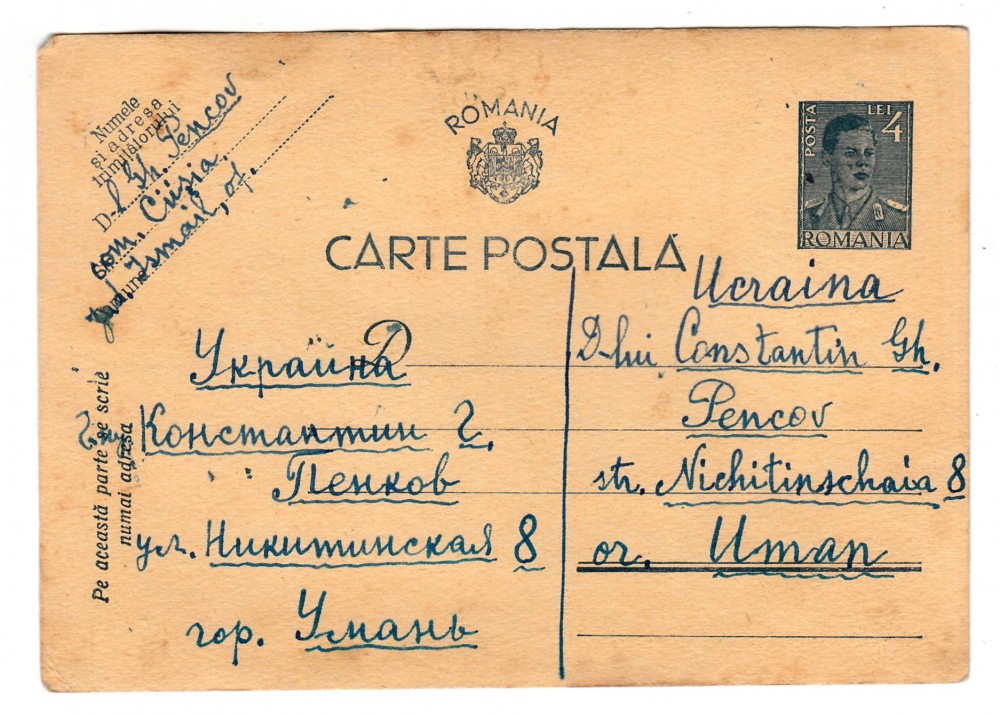 Numele
și adresa
trimițătorului
D-l Gh. Pencov
com. Cïișia
jud. Ismail, of.
ROMANIA
POSTA LEI 4
ROMANIA
CARTE POSTALĂ
Pe această parte se scrie
numai adresa
Украйна
Константин Г.
Пенков
ул. Никитинская 8
гор. Умань
Ucraina
D-lui Constantin Gh.
Pencov
str. Nichitinschaia 8
or. Uman